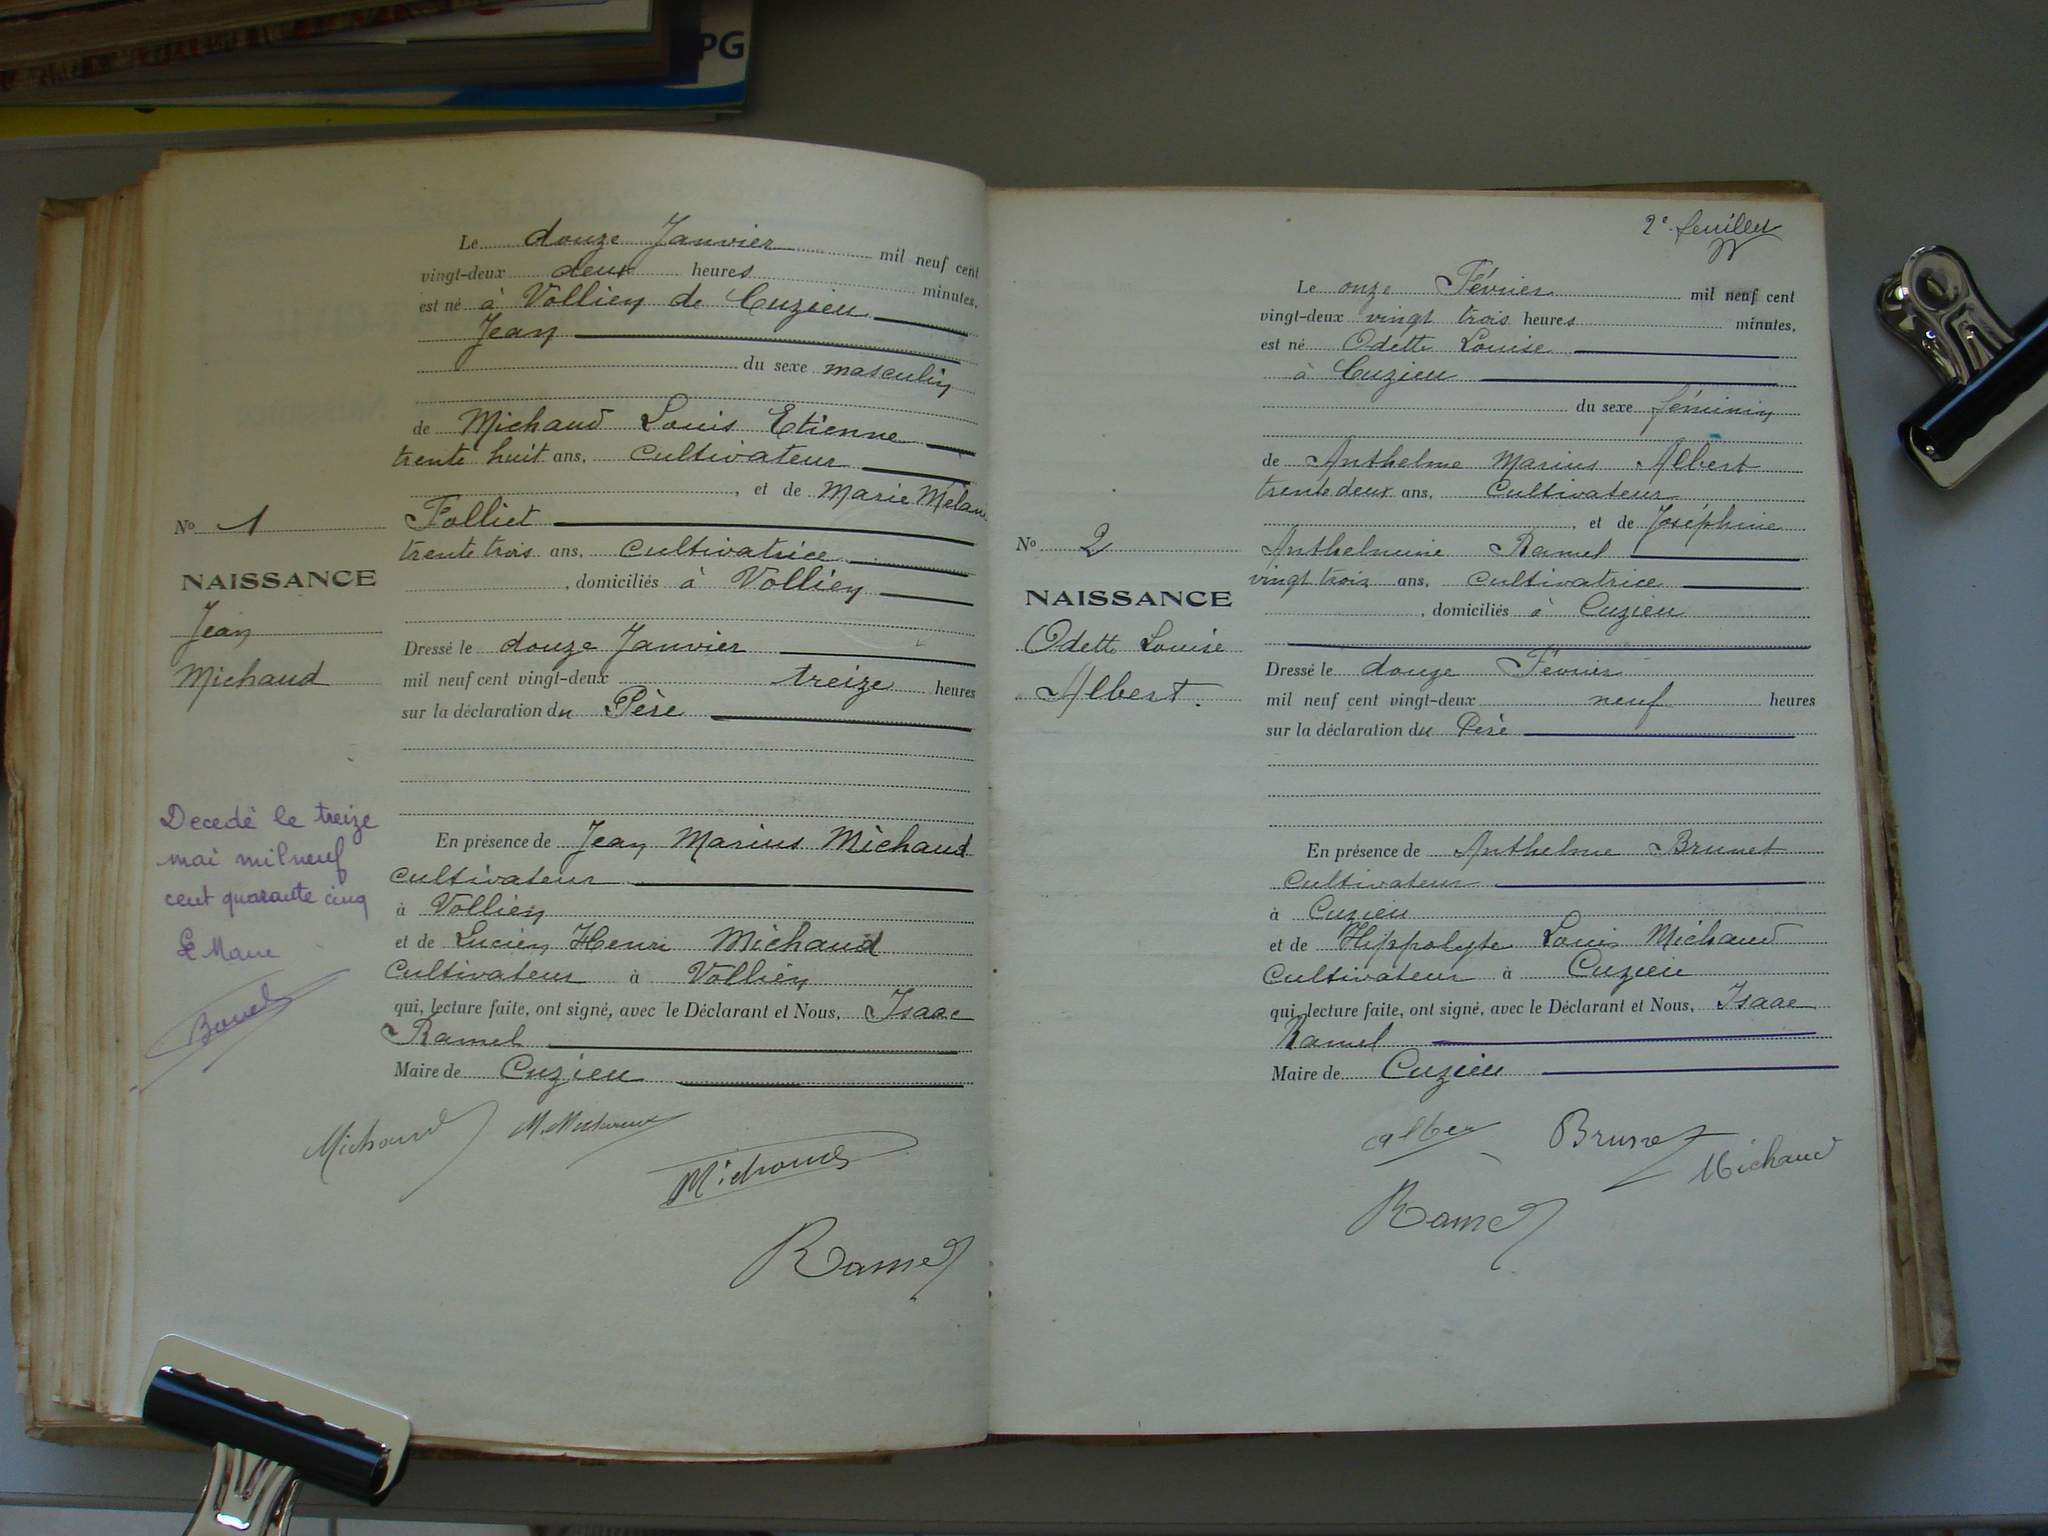 PG
Le douze Janvier mil neuf cent
vingt-deux deux heures minutes,
est né à Vollien de Cuzieu
Jean
du sexe masculin
de Michaud Louis Etienne
trente huit ans, cultivateur
, et de Marie Melanie
Folliet
trente trois ans, cultivatrice
, domiciliés à Vollien
Dressé le douze Janvier
mil neuf cent vingt-deux treize heures
sur la déclaration du Père
En présence de Jean Marius Michaud
cultivateur
à Vollien
et de Lucien Henri Michaud
cultivateur à Vollien
qui, lecture faite, ont signé, avec le Déclarant et Nous, Isaac
Ramel
Maire de Cuzieu
Michaud
Michaud
Ramel
No 1
NAISSANCE
Jean
Michaud
Decedé le treize
mai mil neuf
cent quarante cinq
Le Maire
2e feuillet
Le onze Février mil neuf cent
vingt-deux vingt trois heures minutes,
est né Odette Louise
à Cuzieu
du sexe féminin
de Anthelme Marius Albert
trente deux ans, cultivateur
, et de Joséphine
Anthelmine Ramel
vingt trois ans, cultivatrice
, domiciliés à Cuzieu
Dressé le douze Février
mil neuf cent vingt-deux neuf heures
sur la déclaration du Père
En présence de Anthelme Brunet
cultivateur
à Cuzieu
et de Hippolyte Louis Michaud
cultivateur à Cuzieu
qui, lecture faite, ont signé, avec le Déclarant et Nous, Isaac
Ramel
Maire de Cuzieu
Albert Brunet
Michaud
Ramel
No 2
NAISSANCE
Odette Louise
Albert.